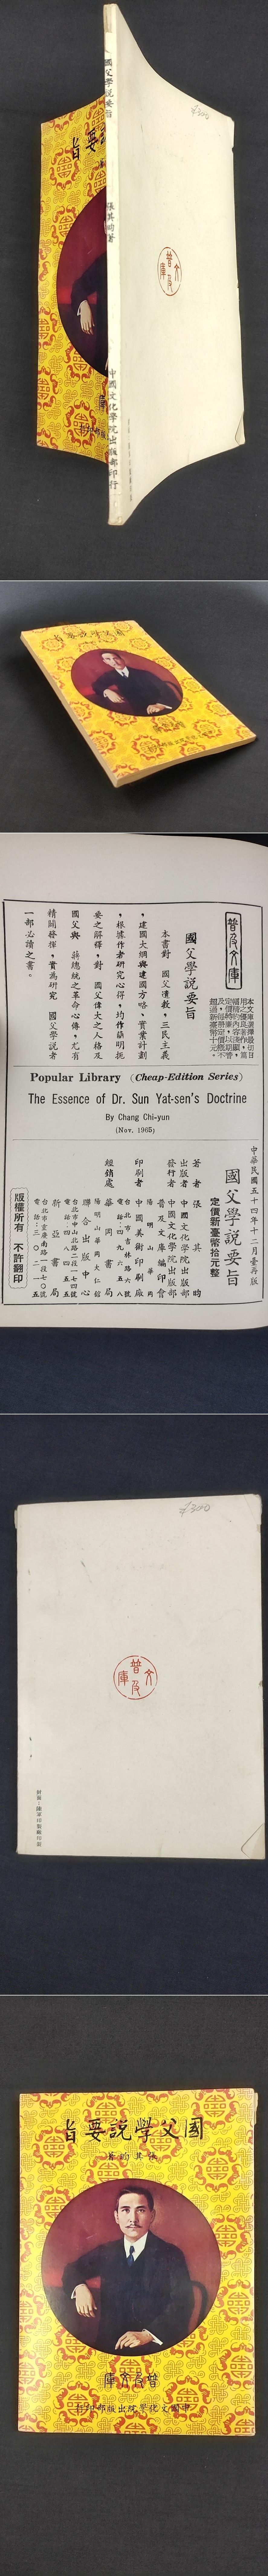 國父學說要旨
張其昀著
中國文化學院出版部印行
普及文庫
國父學說要旨
普及文庫
國父學說要旨
本書對 國父遺教,三民主義
,建國大綱與建國方略、實業計劃
,根據作者研究心得,均作簡明扼
要之解釋,對 國父偉大之人格及
國父與 蔣總統之革命心傳,尤有
精闢發揮,實為研究 國父學說者
一部必讀之書。
Popular Library (Cheap-Edition Series)
The Essence of Dr. Sun Yat-sen's Doctrine
By Chang Chi-yun
(Nov. 1965)
中華民國五十四年十二月臺再版
國父學說要旨
定價新臺幣拾元整
著者 張其昀
出版者 中國文化學院出版部
發行者 中國文化學院出版部
普及文庫編印會
陽明山華岡
印刷者 中國美術印刷廠
臺北市吉林路六號
電話:四九六五八
經銷處 華岡書局
陽明山華岡大仁館
聯合出版中心
台北市中山北路二段一七四號
電話:四八四五五
新亞書局
版權所有 不許翻印
普及文庫
國父學說要旨
張其昀著
普及文庫
中國文化學院出版部印行